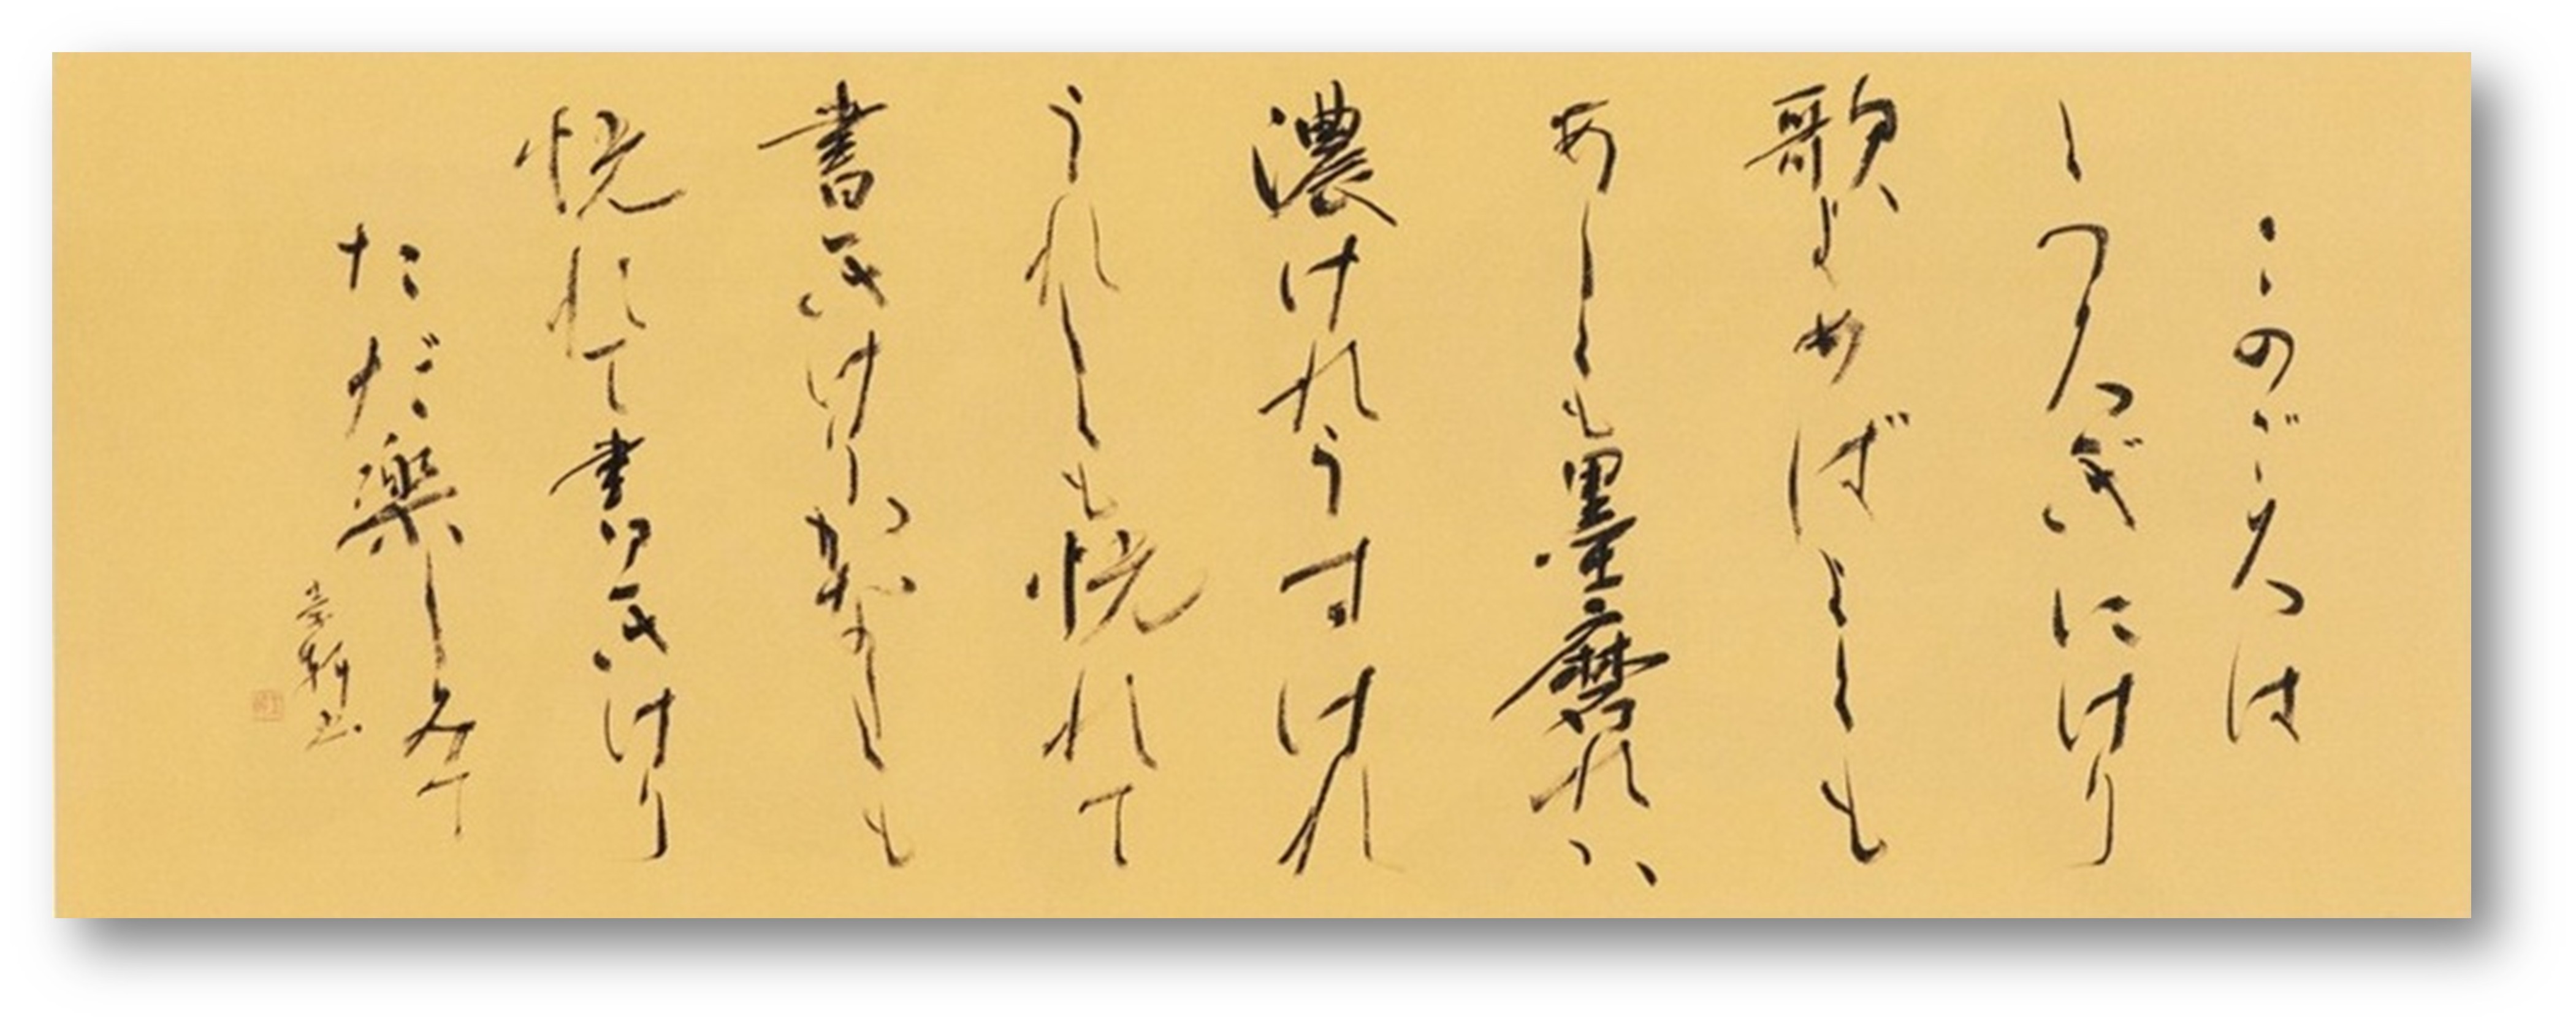 このごろは
くつろぎにけり
歌よめばよしくも
あしくも墨磨れば
濃けれうすけれ
うれしくも恍れて
書きけりかなしくも
恍れて書きけり
ただ楽しみて